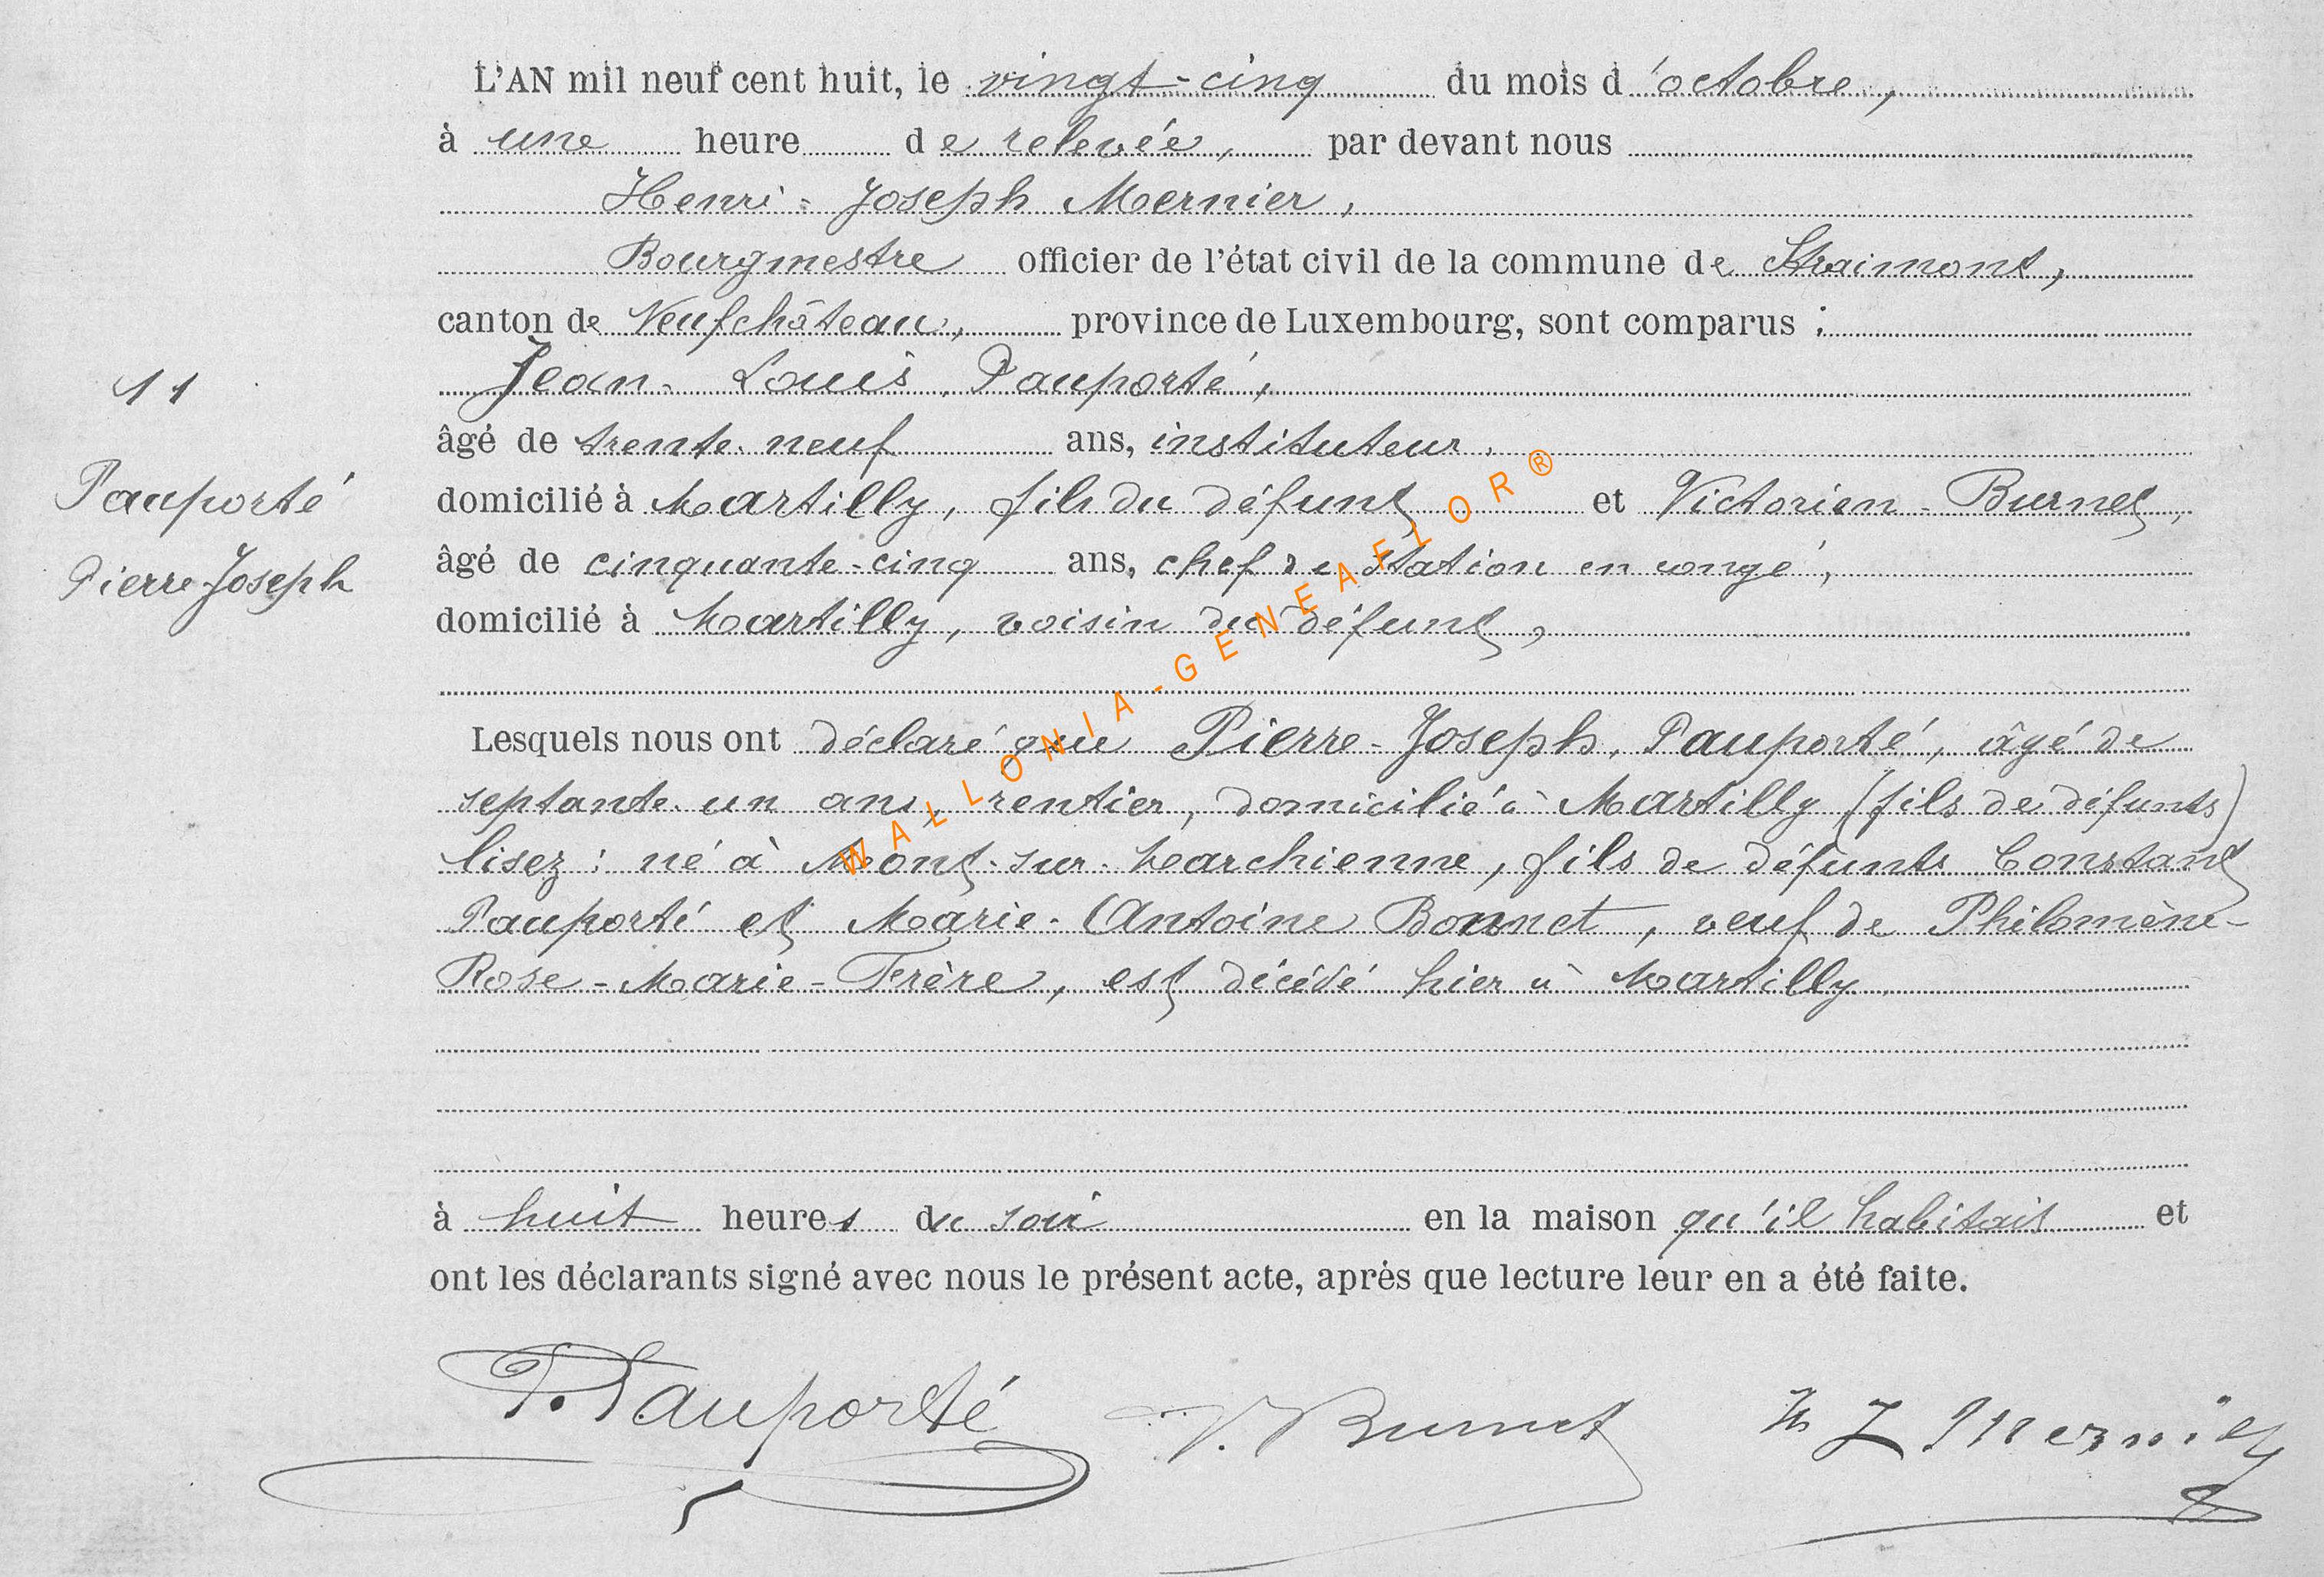 L'AN mil neuf cent huit, le vingt-cinq du mois d'octobre,
à une heure de relevée, par devant nous
Henri-Joseph Mernier,
Bourgmestre officier de l'état civil de la commune de Straimont,
canton de Neufchâteau, province de Luxembourg, sont comparus :
11
Jean-Louis Pauporté,
âgé de trente-neuf ans, instituteur,
Pauporté
domicilié à Martilly, fils du défunt et Victorien Burnet,
Pierre-Joseph
âgé de cinquante-cinq ans, chef de station en congé,
domicilié à Martilly, voisin du défunt,
Lesquels nous ont déclaré que Pierre-Joseph Pauporté, âgé de
septante-un ans, rentier, domicilié à Martilly (fils de défunts)
lisez : né à Mont-sur-Marchienne, fils de défunts Constant
Pauporté et Marie-Antoine Bonnet, veuf de Philomène-
Rose-Marie-Frère, est décédé hier à Martilly.
à huit heures du soir en la maison qu'il habitait et
ont les déclarants signé avec nous le présent acte, après que lecture leur en a été faite.
Pauporté V. Burnet H J Mernier
WALLONIA-GENEAFLOR®